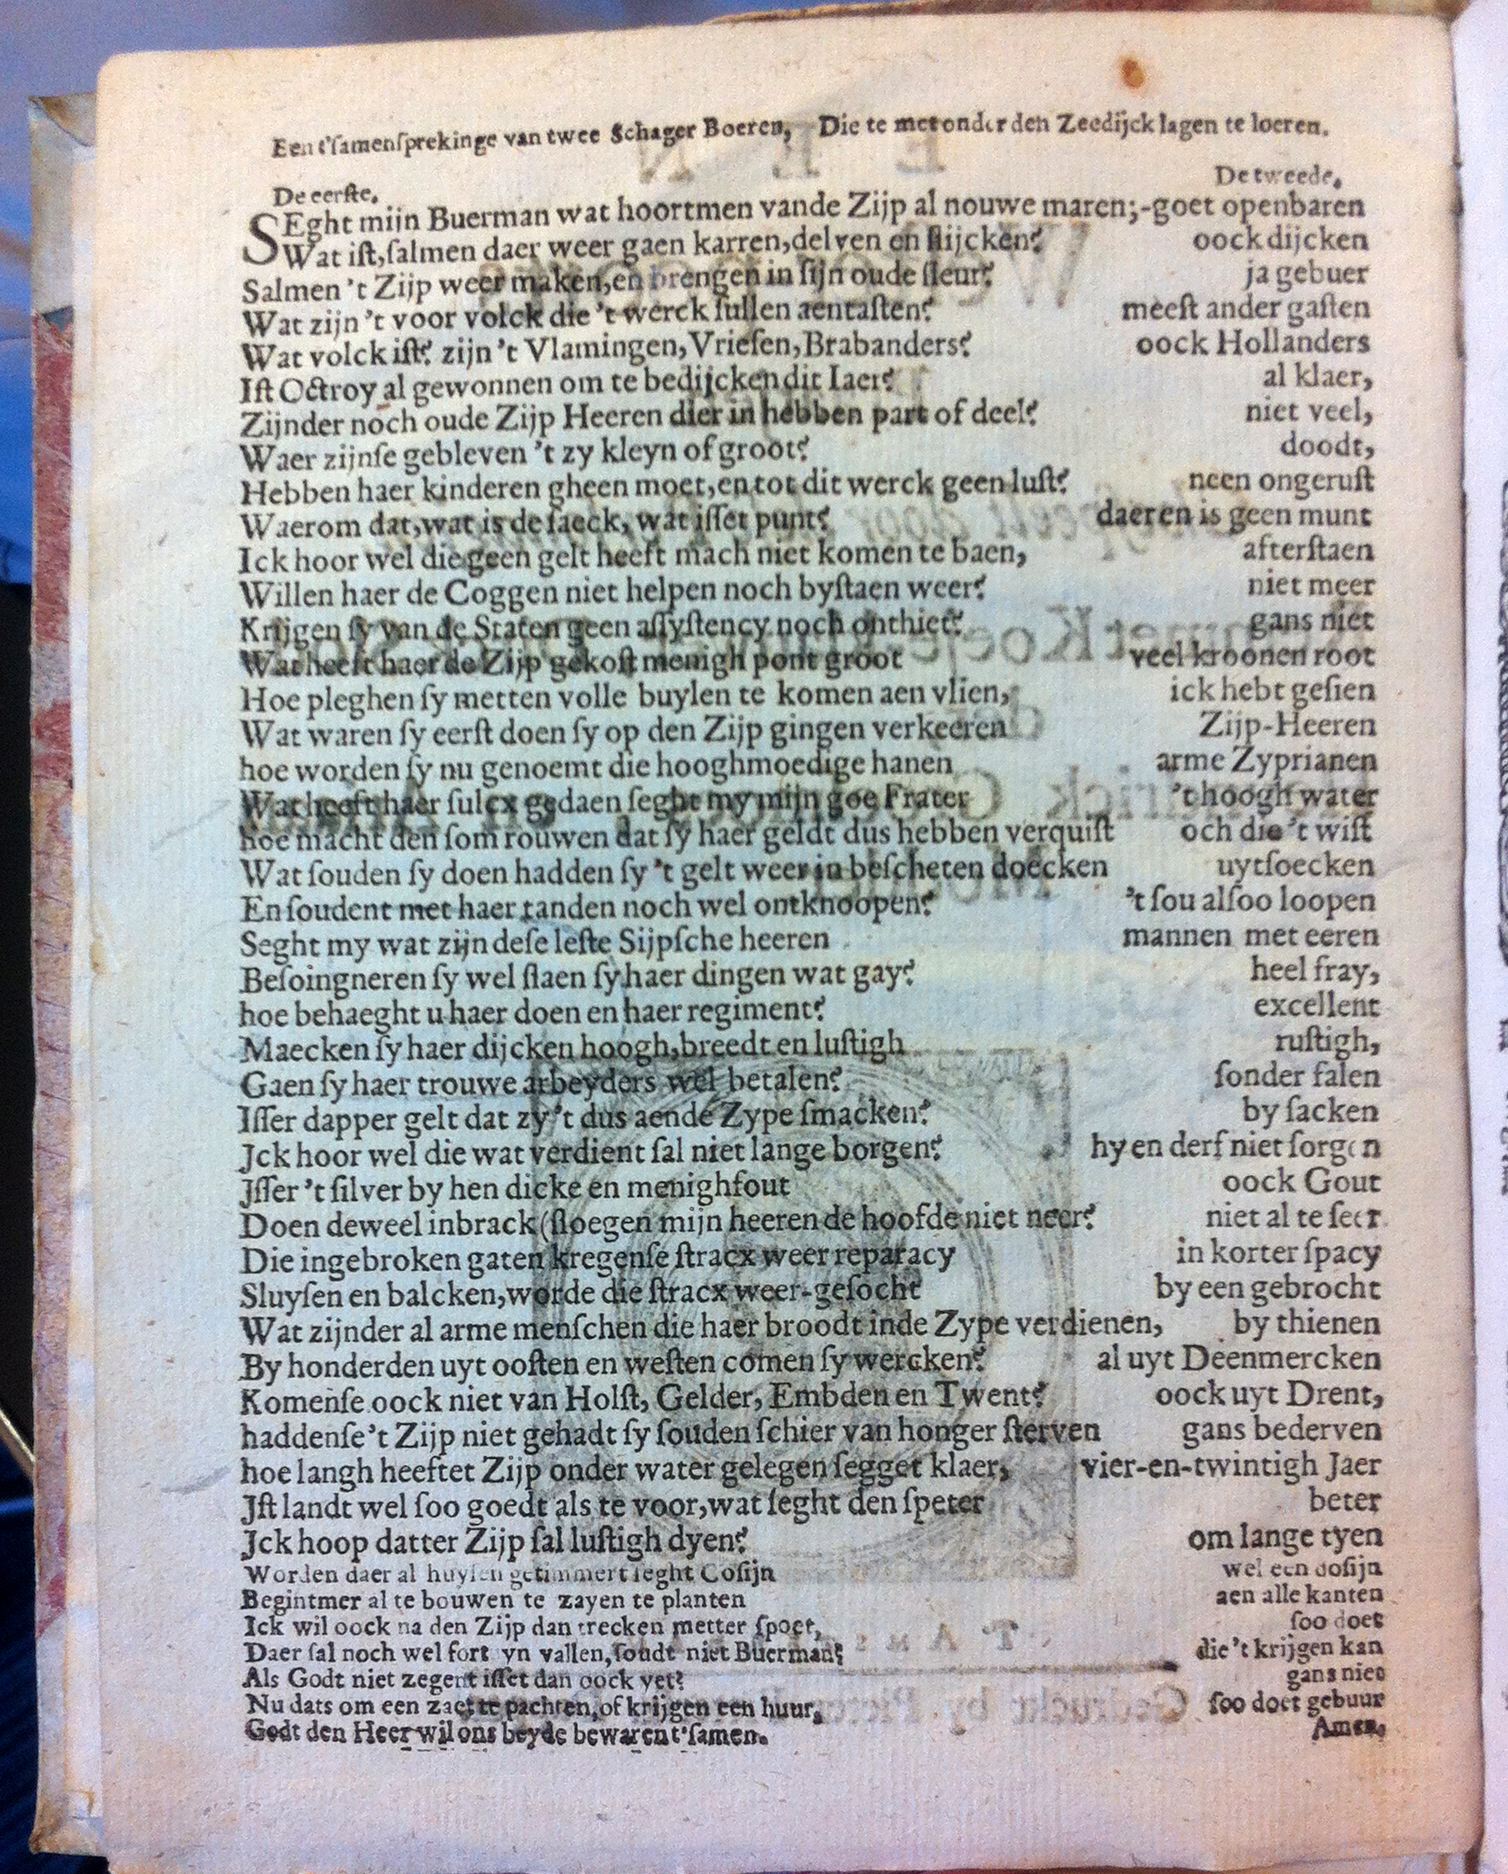 Een t'samenſprekinge van twee Schager Boeren, Die te met onder den Zeedijck lagen te loeren.
De eerſte. De tweede.
SEght mijn Buerman wat hoortmen vande Zijp al nouwe maren;-goet openbaren
Wat iſt,ſalmen daer weer gaen karren,delven en ſlijcken? oock dijcken
Salmen 't Zijp weer maken,en brengen in ſijn oude ſleur? ja gebuer
Wat zijn 't voor volck die 't werck ſullen aentaſten? meeſt ander gaſten
Wat volck iſt? zijn 't Vlamingen,Vrieſen,Brabanders? oock Hollanders
Iſt Octroy al gewonnen om te bedijcken dit Iaer? al klaer,
Zijnder noch oude Zijp Heeren dier in hebben part of deel? niet veel,
Waer zijnſe gebleven 't zy kleyn of groot? doodt,
Hebben haer kinderen gheen moet,en tot dit werck geen luſt? neen ongeruſt
Waerom dat,wat is de ſaeck, wat iſſet punt? daer en is geen munt
Ick hoor wel die geen gelt heeft mach niet komen te baen, afterſtaen
Willen haer de Coggen niet helpen noch byſtaen weer? niet meer
Krijgen ſy van de Staten geen aſſyſtency noch onthiet? gans niet
Wat heeft haer de Zijp gekoſt menigh pont groot veel kroonen root
Hoe pleghen ſy metten volle buylen te komen aen vlien, ick hebt geſien
Wat waren ſy eerſt doen ſy op den Zijp gingen verkeeren Zijp-Heeren
hoe worden ſy nu genoemt die hooghmoedige hanen arme Zyprianen
Wat heeft haer ſulcx gedaen ſeght my mijn goe Frater 't hoogh water
hoe macht den ſom rouwen dat ſy haer geldt dus hebben verquiſt och die 't wiſt
Wat ſouden ſy doen hadden ſy 't gelt weer in beſcheten doecken uytſoecken
En ſoudent met haer tanden noch wel ontknoopen? 't ſou alſoo loopen
Seght my wat zijn deſe leſte Sijpſche heeren mannen met eeren
Beſoingneren ſy wel ſlaen ſy haer dingen wat gay? heel fray,
hoe behaeght u haer doen en haer regiment? excellent
Maecken ſy haer dijcken hoogh,breedt en luſtigh ruſtigh,
Gaen ſy haer trouwe arbeyders wel betalen? ſonder falen
Iſſer dapper gelt dat zy 't dus aende Zype ſmacken? by ſacken
Jck hoor wel die wat verdient ſal niet lange borgen? hy en derf niet ſorgen
Jſſer 't ſilver by hen dicke en menighfout oock Gout
Doen deweel inbrack (ſloegen mijn heeren de hoofde niet neer? niet al te ſeer
Die ingebroken gaten kregenſe ſtracx weer reparacy in korter ſpacy
Sluyſen en balcken,worde die ſtracx weer-geſocht by een gebrocht
Wat zijnder al arme menſchen die haer broodt inde Zype verdienen, by thienen
By honderden uyt ooſten en weſten comen ſy wercken? al uyt Deenmercken
Komenſe oock niet van Holſt, Gelder, Embden en Twent? oock uyt Drent,
haddenſe 't Zijp niet gehadt ſy ſouden ſchier van honger ſterven gans bederven
hoe langh heeftet Zijp onder water gelegen ſegget klaer, vier-en-twintigh Jaer
Jſt landt wel ſoo goedt als te voor,wat ſeght den ſpeter beter
Jck hoop datter Zijp ſal luſtigh dyen? om lange tyen
Worden daer al huyſen getimmert ſeght Coſijn wel een doſijn
Begintmer al te bouwen te zayen te planten aen alle kanten
Ick wil oock na den Zijp dan trecken metter ſpoet, ſoo doet
Daer ſal noch wel fort yn vallen,ſoudt niet Buerman? die 't krijgen kan
Als Godt niet zegent iſſet dan oock yet? gans niet
Nu dats om een zaet te pachten,of krijgen een huur, ſoo doet gebuur
Godt den Heer wil ons beyde bewaren t'ſamen. Amen.